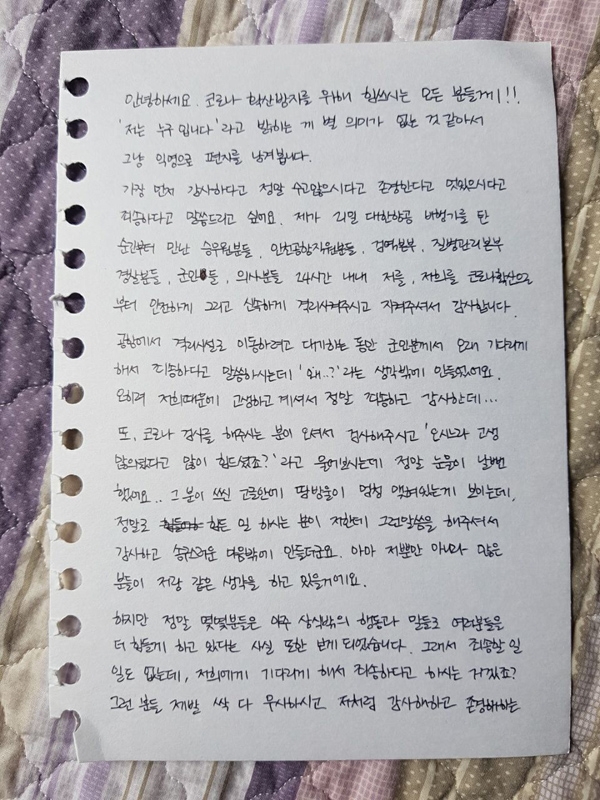 안녕하세요. 코로나 확산방지를 위해 힘쓰시는 모든 분들께!!.
'저는 누구입니다'라고 밝히는 게 별 의미가 없는 것 같아서
그냥 익명으로 편지를 남겨봅니다.
가장 먼저 감사하다고 정말 수고많으시다고 존경한다고 멋있으시다고
죄송하다고 말씀드리고 싶어요. 제가 21일 대한항공 비행기를 탄
순간부터 만난 승무원분들, 인천공항직원분들, 검역본부, 질병관리본부
경찰분들, 군인들, 의사분들 24시간 내내 저를, 저희를 코로나확산으로
부터 안전하게 그리고 신속하게 격리시켜주시고 지켜주셔서 감사합니다.
공항에서 격리시설로 이동하려고 대기하는 동안 군인분께서 오래 기다리게
해서 죄송하다고 말씀하시는데 '왜..?'라는 생각밖에 안들었어요.
오히려 저희때문에 고생하고계셔서 정말 죄송하고 감사한데...
또, 코로나 검사를 해주시는 분이 오셔서 검사해주시고 '오시느라 고생
많으셨다고 많이 힘드셨죠?'라고 물어보시는데 정말 눈물이 날뻔
했어요.. 그 분이 쓰신 고글안에 땀방울이 엄청 맺혀있는게 보이는데,
정말로 힘든 일 하시는 분이 저한테 그런말씀을 해주셔서
감사하고 송구스러운 마음밖에 안들더군요. 아마 저뿐만 아니라 많은
분들이 저랑 같은 생각을 하고 있을거에요.
하지만 정말 몇몇분들은 아주 상식밖의 행동과 말들로 여러분들을
더 힘들게 하고 있다는 사실 또한 보게 되었습니다. 그래서 죄송할 일
일도 없는데, 저희에게 기다리게 해서 죄송하다고 하시는 거겠죠?
그런 분들 제발 싹 다 무시하시고 저처럼 감사해하고 존경해하는